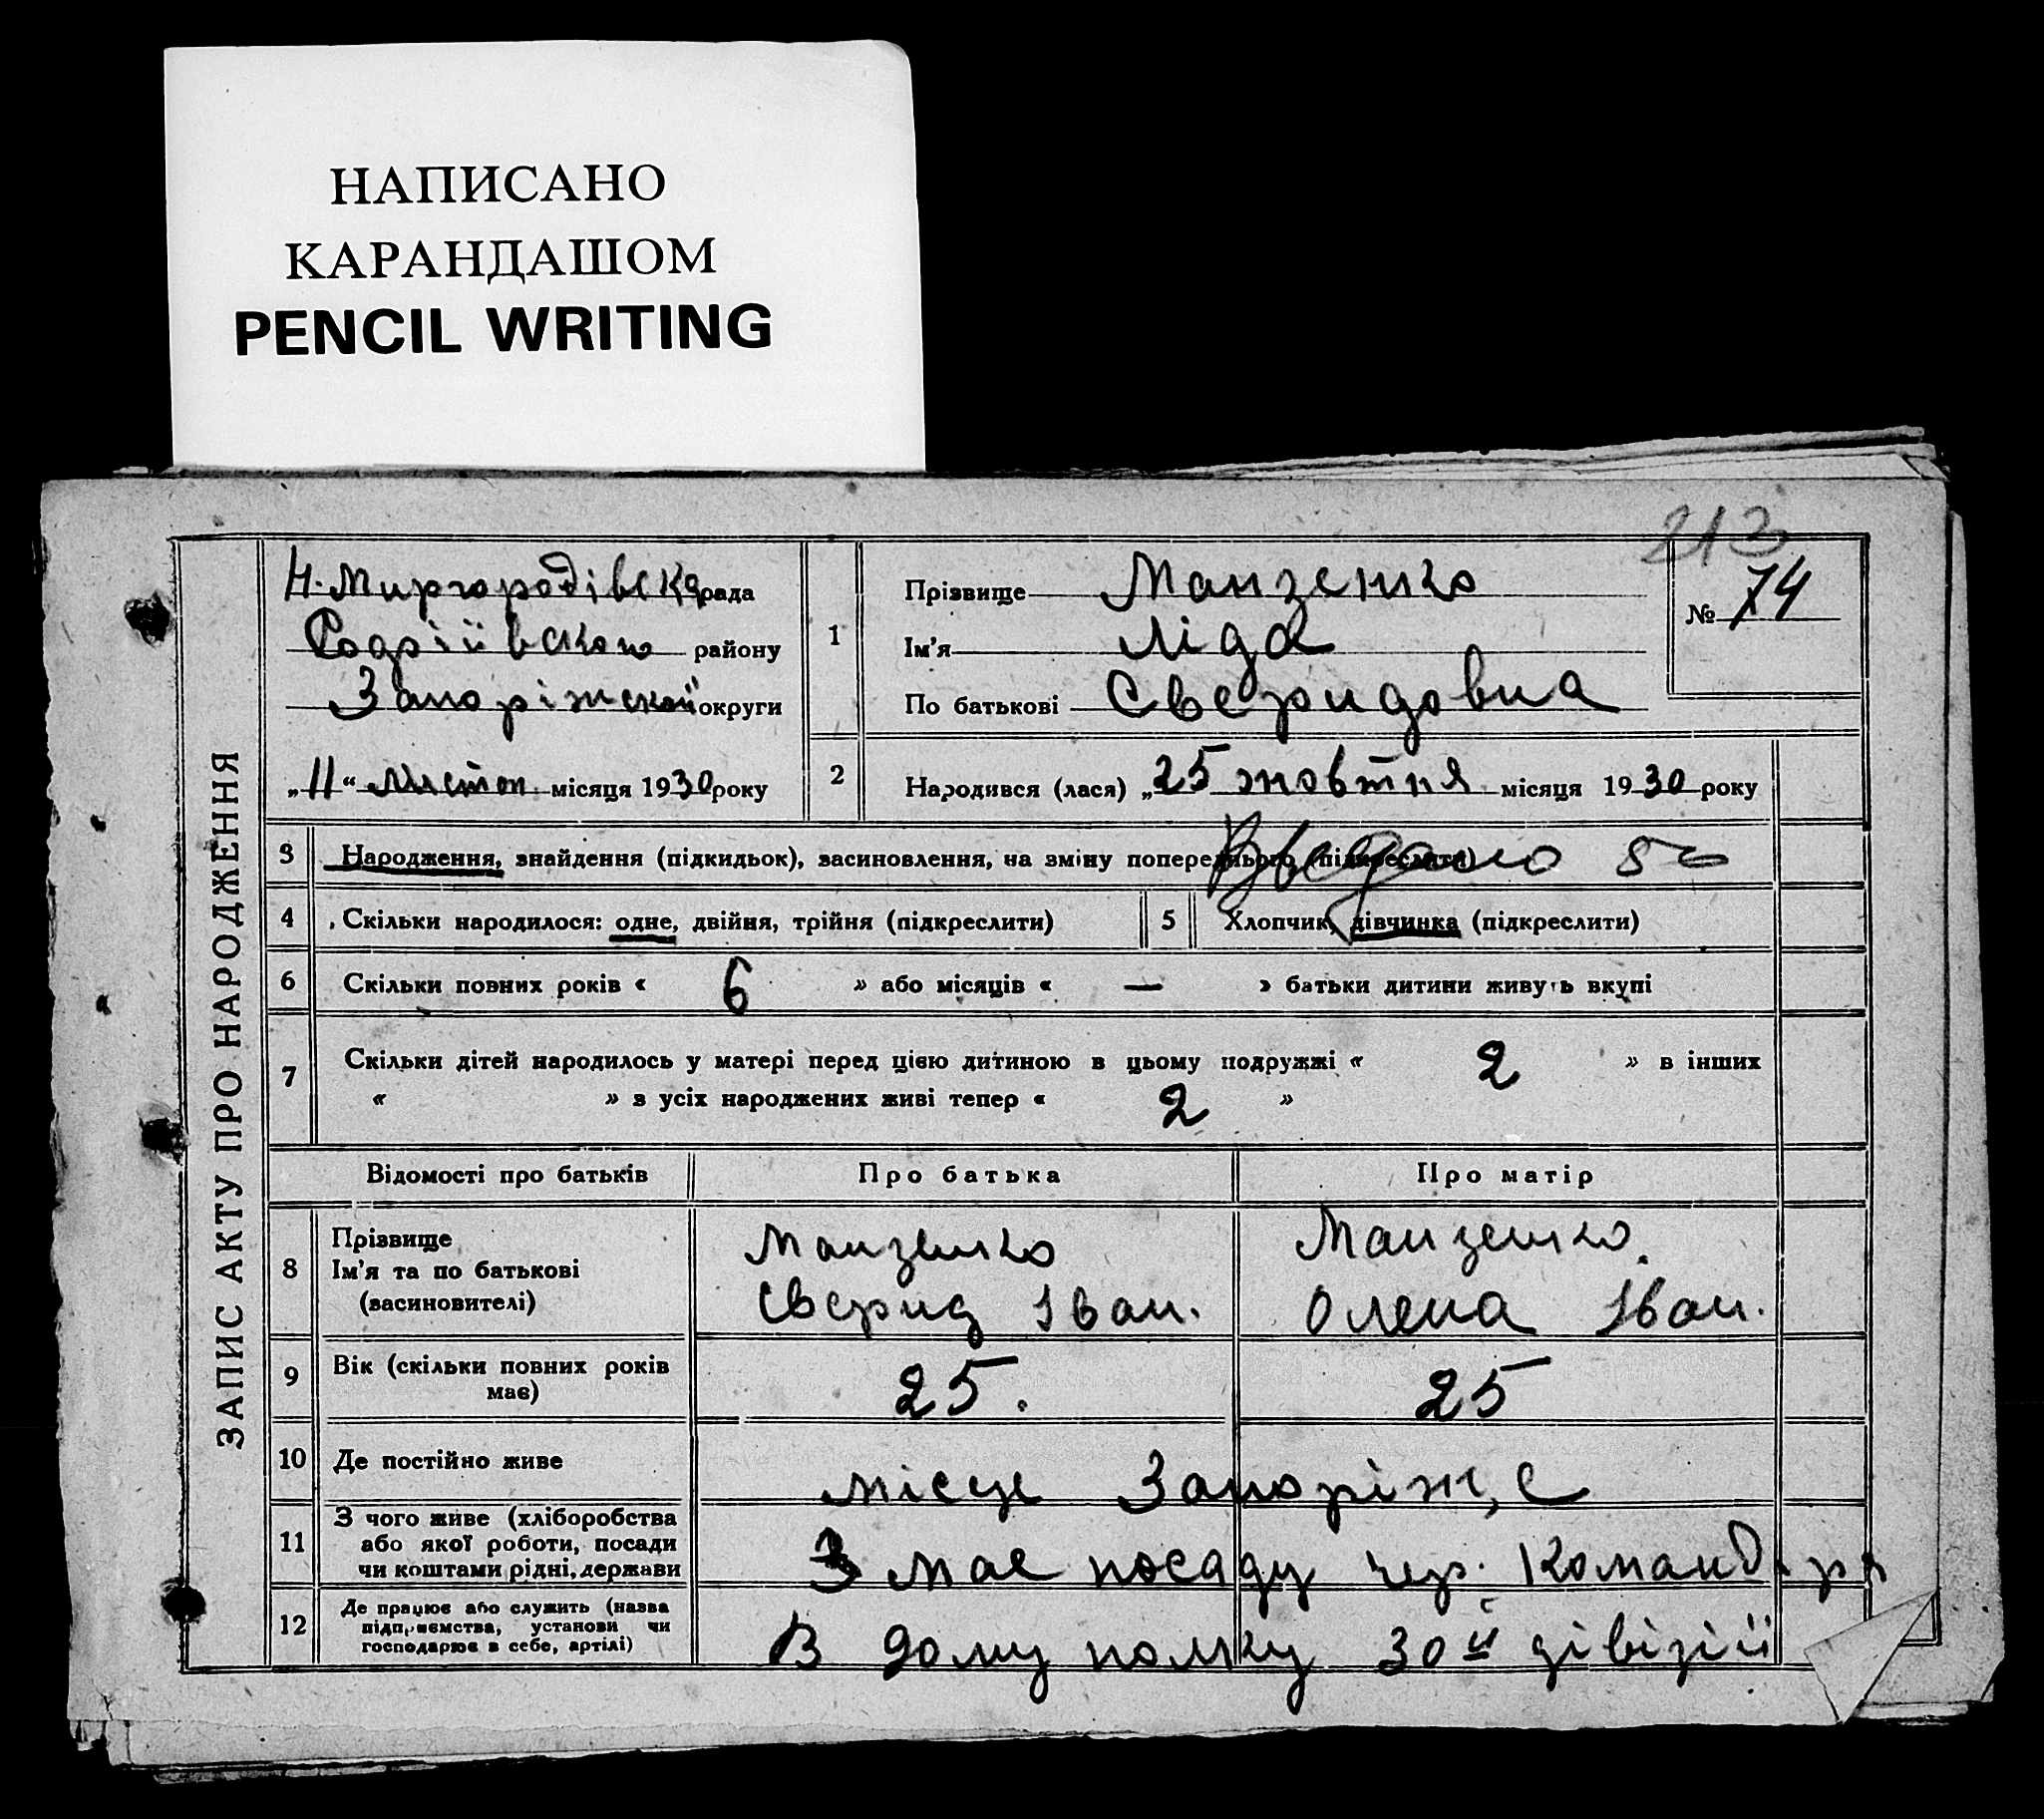 НАПИСАНО
КАРАНДАШОМ
PENCIL WRITING
213
ЗАПИС АКТУ ПРО НАРОДЖЕННЯ
Н. Миргородівська рада
району
Запоріжської округи
„11“ листоп місяця 1930 року
1
Прізвище Манзенко
Ім'я Ліда
По батькові Сверидовна
№ 74
2
Народився (лася) „25 жовтня місяця 1930 року
3 Народження, знайдення (підкидьок), засиновлення, на зміну попереднього (підкреслити)
4 Скільки народилося: одне, двійня, трійня (підкреслити)
5 Хлопчик, дівчинка (підкреслити)
6 Скільки повних років « 6 » або місяців « — » батьки дитини живуть вкупі
7 Скільки дітей народилось у матері перед цією дитиною в цьому подружжі « 2 » в інших
« » з усіх народжених живі тепер « 2 »
Відомості про батьків Про батька Про матір
8 Прізвище
Ім'я та по батькові
(засиновителі)
Манзенко
Сверид Іван.
Манзенко
Олена Іван.
9 Вік (скільки повних років
має)
25. 25
10 Де постійно живе
місце Запоріжжє
11 З чого живе (хліборобства
або якої роботи, посади
чи коштами рідні, держави
З має посаду чер. Командира
12 Де працює або служить (назва
підприємства, установи чи
господарює в себе, артілі)
В дому полку 30ї дівізії